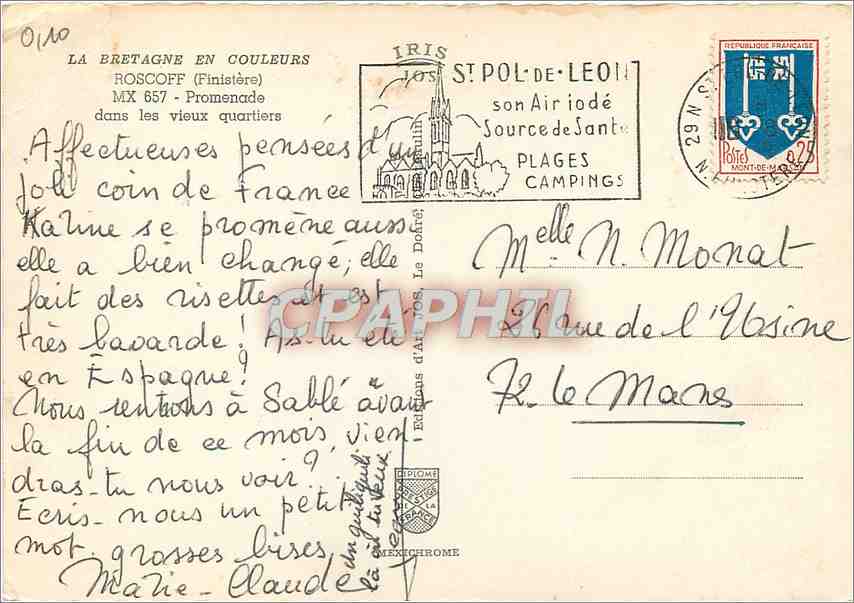 0,10
LA BRETAGNE EN COULEURS
ROSCOFF (Finistère)
MX 657 - Promenade
dans les vieux quartiers
IRIS
JOS
ST POL-DE-LEON
son Air iodé
Source de Santé
PLAGES
CAMPINGS
REPUBLIQUE FRANÇAISE
POSTES
0,25
MONT-DE-MARSAN
29 N.
N. FINISTERE
Affectueuses pensées d'un
joli coin de France
Karine se promène aussi
elle a bien changé, elle
fait des risettes et est
très bavarde! As-tu été
en Espagne?
Nous rentrons à Sablé avant
la fin de ce mois, vien-
dras-tu nous voir?
Ecris-nous un petit
mot. grosses bises
Marie-Claude
un guiliguili
là où tu veux
Editions d'Art JOS, Le Doaré,
DIPLOME
PRESTIGE
DE LA
FRANCE
MEXICHROME
Melle N. Monat
26 rue de l'Usine
72-le Mans
CPAPHIL